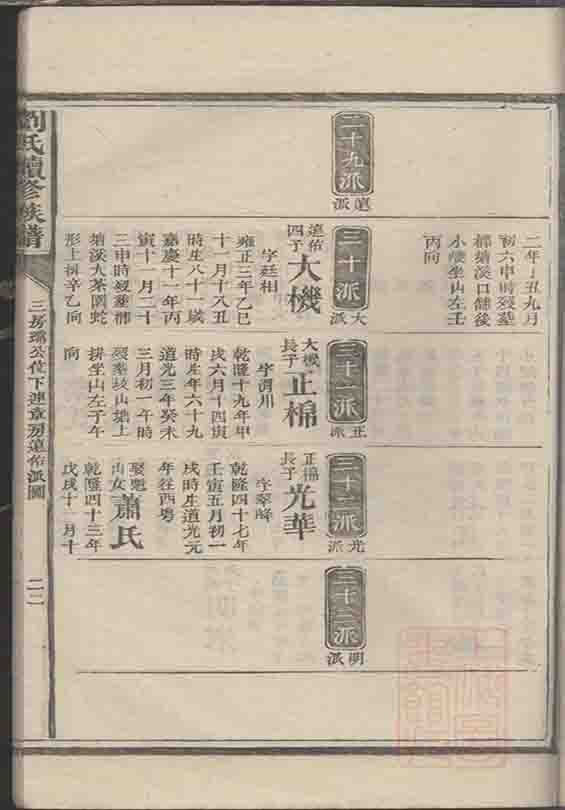 二年丁丑九月
初六申時歿墓
楊塘溪口餘後
小嶺坐山左壬
丙向
二十九派
遠派
三十派
大派
遠佑
四子
大機
字廷相
雍正三年乙巳
十一月十八丑
時生八十一歲
嘉慶十一年丙
寅十一月二十
三申時歿葬楊
塘溪大茶園蛇
形上排辛乙向
三十一派
正派
大機
長子
正棉
字渭川
乾隆十九年甲
戌六月十四寅
時生年六十九
道光三年癸未
三月初一午時
歿葬坡山塘上
排坐山左子午
向
三十二派
光派
正棉
長子
光華
字翠峰
乾隆四十七年
壬寅五月初一
戌時生道光元
年往西粵
娶
山女
蕭氏
乾隆四十三年
戊戌十一月十
三十三派
明派
劉氏續修族譜
三房瑞公位下連章房遠佑派圖
二二